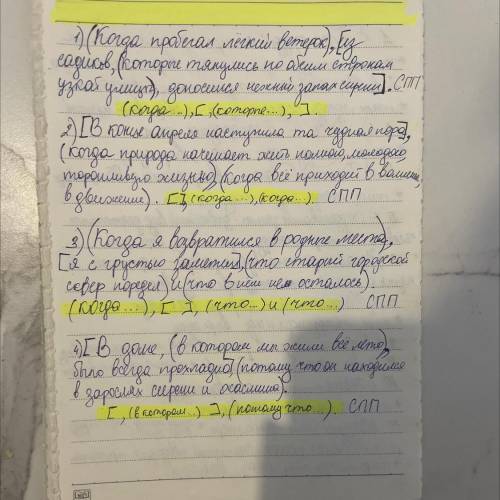 1) (Когда пробегал лёгкий ветерок), [из
садиков, (которые тянулись по обеим сторонам
узкой улицы), доносился нежный запах сирени]. СПП
(когда...), [ , (которые...), ].
2) [В конце апреля наступила та чудная пора],
(когда природа начинает жить полною, молодою,
торопливую жизнью), (когда всё приходит в волнение,
в движение). [ ], (когда...), (когда...). СПП
3) (Когда я возвратился в родные места),
[я с грустью заметил], (что старый городской
сквер поредел) и (что в нём осталось).
(Когда...), [ ], (что...) и (что...) СПП
4) [В доме, (в котором мы жили всё лето),
было всегда прохладно] (потому что он находился
в зарослях сирени и жасмина).
[ , (в котором...) ], (потому что...). СПП